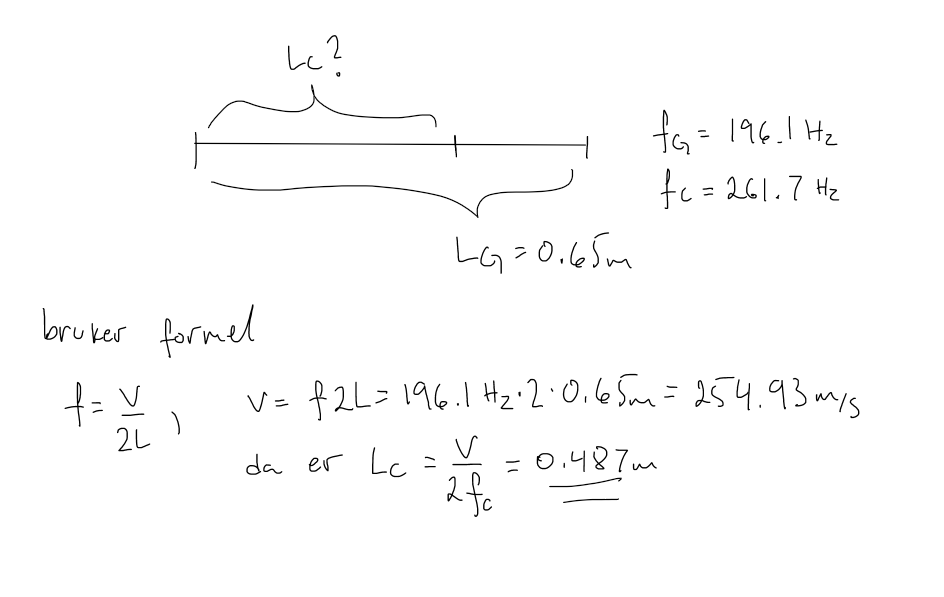 Lc?
fG = 196.1 Hz
fc = 261.7 Hz
LG = 0.65m
bruker formel
f = V/2L, V = f2L = 196.1 Hz·2·0.65m = 254.93 m/s
da er Lc = V/2fc = 0.487m